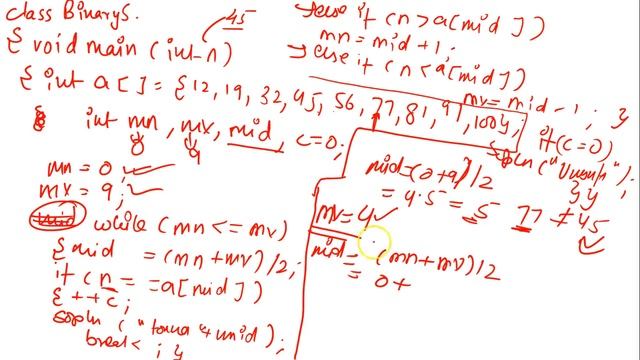 class BinaryS.
{ void main (int n)
45
{ int a[] = {12, 19, 32, 45, 56, 77, 81, 91, 100};
int mn, mx, mid, c=0;
0 9
mn = 0;
mx = 9;
while (mn <= mv)
{ mid = (mn+mv)/2;
if (n == a[mid])
{ ++c;
sopln ("found" + mid);
break; }
else if (n > a[mid])
mn = mid + 1;
else if (n < a[mid])
mv = mid - 1; }
if (c=0)
}}
mid = (0+9)/2
= 4.5 = 5 77 ≠ 45
mv = 4
mid = (mn+mv)/2
= 0+